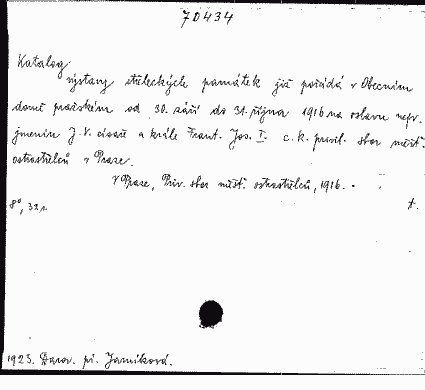 70434
Katalog
výstavy střeleckých památek již pořádá v Obecním
domě pražském od 30. září do 31. října 1916 na oslavu nejv.
jmenin J. V. císaře a krále Frant. Jos. I. c. k. privil. sbor měšt.
ostrostřelců v Praze.
V Praze, Priv. sbor měšt. ostrostřelců, 1916.
8°, 32 s. t.
1923. Darov. pí. Jarníková.